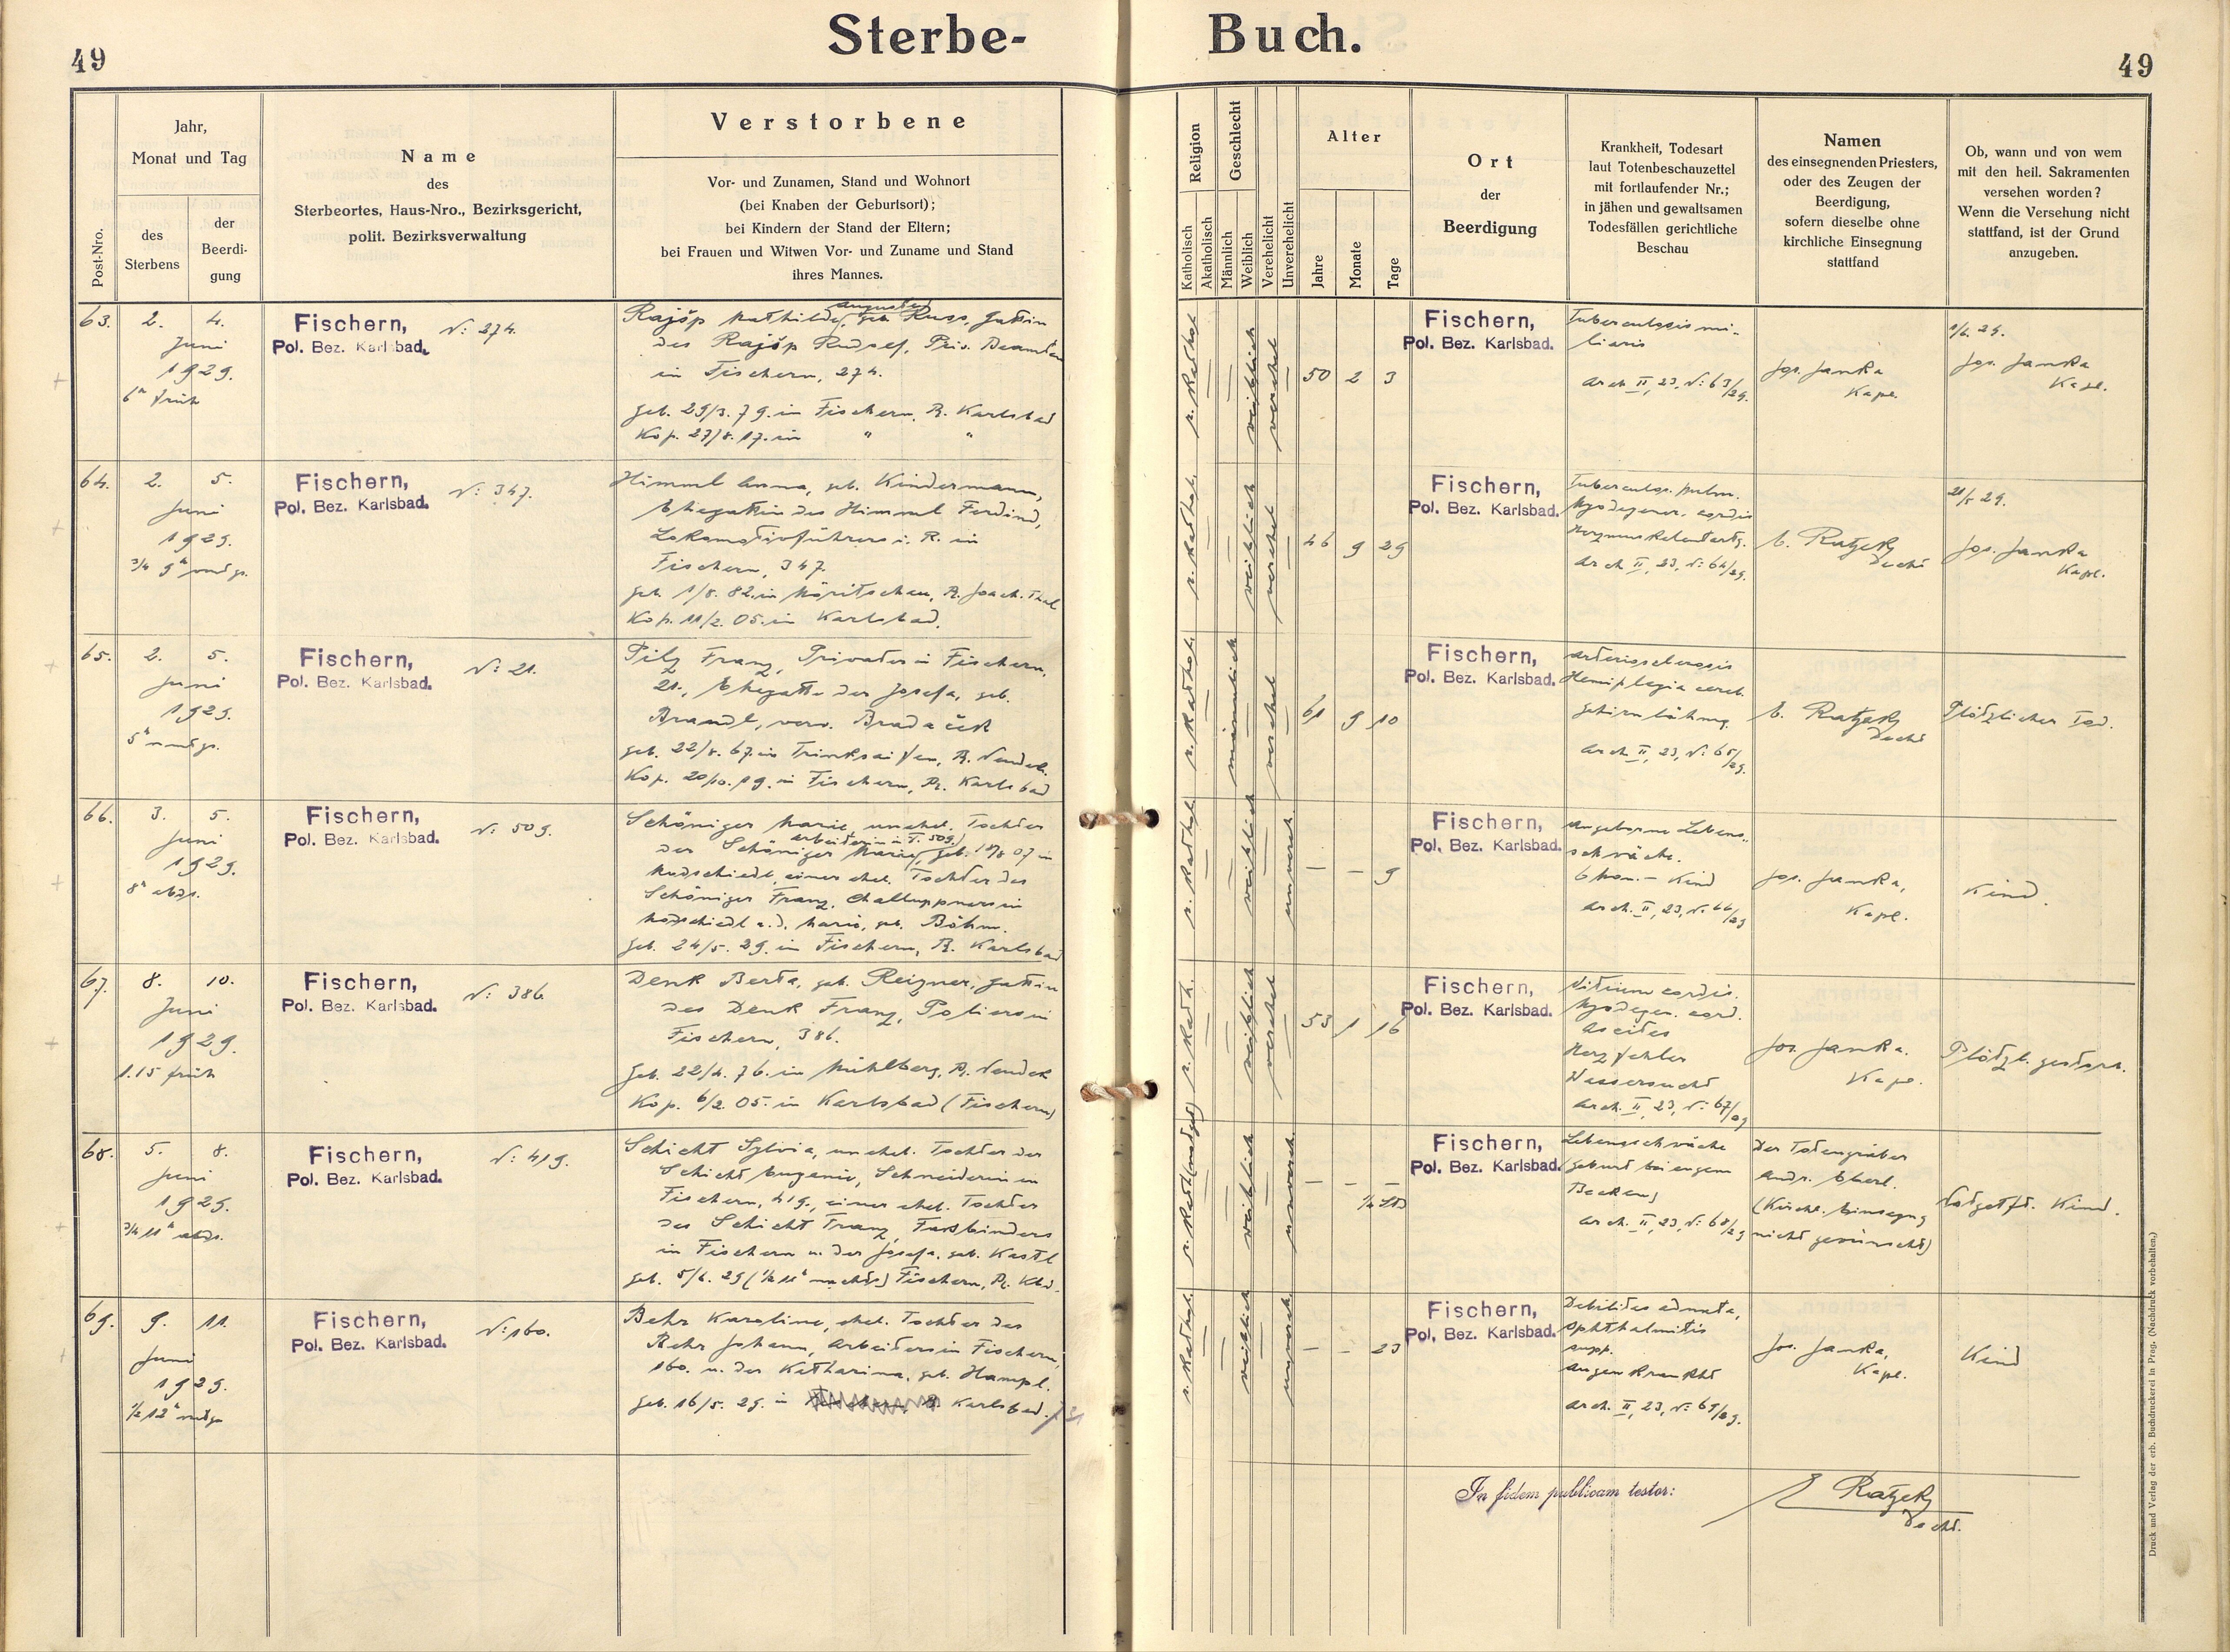 Sterbe- Buch.
49
49
Post-Nro.
Jahr,
Monat und Tag
des
Sterbens
der
Beerdi-
gung
Name
des
Sterbeortes, Haus-Nro., Bezirksgericht,
polit. Bezirksverwaltung
Verstorbene
Vor- und Zunamen, Stand und Wohnort
(bei Knaben der Geburtsort);
bei Kindern der Stand der Eltern;
bei Frauen und Witwen Vor- und Zuname und Stand
ihres Mannes.
Religion
Katholisch
Akatholisch
Geschlecht
Männlich
Weiblich
Verehelicht
Unverehelicht
Alter
Jahre
Monate
Tage
Ort
der
Beerdigung
Krankheit, Todesart
laut Totenbeschauzettel
mit fortlaufender Nr.;
in jähen und gewaltsamen
Todesfällen gerichtliche
Beschau
Namen
des einsegnenden Priesters,
oder des Zeugen der
Beerdigung,
sofern dieselbe ohne
kirchliche Einsegnung
stattfand
Ob, wann und von wem
mit den heil. Sakramenten
versehen worden?
Wenn die Versehung nicht
stattfand, ist der Grund
anzugeben.
63.
2. 4.
Juni
1929.
6h früh
Fischern,
Pol. Bez. Karlsbad.
N: 274.
Augustin
Rajšp Mathilde, geb. Russ, Gattin
des Rajšp Rudolf, Priv. Beamten
in Fischern, 274.
geb. 29/3. 79. in Fischern, B. Karlsbad
Kop. 27/8. 17. in " "
r. kathol.
weiblich
verehel
50 2 3
Fischern,
Pol. Bez. Karlsbad.
Tuberculosis mi-
liaris
Arch II, 23, N: 63/29.
Jos. Janka
Kapl.
1/6. 29.
Jos. Janka
Kapl.
64.
2. 5.
Juni
1929.
3/4 9h
Fischern,
Pol. Bez. Karlsbad.
N: 347.
Himml Anna, geb. Kindermann,
Ehegattin des Himml Ferdind,
Lokomotivführers i. R. in
Fischern, 347.
geb. 1/8. 82. in Möritschau, B. Joach. Thal
Kop. 11/2. 05. in Karlsbad.
r. kathol.
weiblich
verehel
46 9 29
Fischern,
Pol. Bez. Karlsbad.
Tuberculos. pulm.
Myodegener. cordis
Arch II, 23, N: 64/29.
E. Ratzek
Decht
21/5 29.
Jos. Janka
Kapl.
65.
2. 5.
Juni
1929.
5h
Fischern,
Pol. Bez. Karlsbad.
N: 21.
Pilz Franz, Privater in Fischern,
21., Ehegatte der Josefa, geb.
Brandl, verw. Bradaček
geb. 22/8. 67. in Trinksaifen, B. Neudek.
Kop. 20/10. 19. in Fischern, B. Karlsbad
r. kathol.
männlich
verehel
61 9 10
Fischern,
Pol. Bez. Karlsbad.
Arteriosclerosis
Hemiplegia cereb.
Gehirnlähmg.
Arch II, 23, N: 65/29.
E. Ratzek
Decht
Plötzlicher Tod.
66.
3. 5.
Juni
1929.
8h abds.
Fischern,
Pol. Bez. Karlsbad.
N: 509.
Schöniger Marie, unehel. Tochter
Arbeiterin in F. 509.)
der Schöniger Marie, geb. 18/8 07 in
einer ehel. Tochter des
Schöniger Franz, Challuppners in
u. d. Marie, geb. Böhm.
geb. 24/5. 29. in Fischern, B. Karlsbad
r. kathol.
weiblich
unvereh.
– – 9
Fischern,
Pol. Bez. Karlsbad.
Angeborne Lebens-
schwäche.
6 Mon.– Kind
Arch. II, 23, N: 66/29
Jos. Janka,
Kapl.
Kind.
67.
8. 10.
Juni
1929.
1.15 früh
Fischern,
Pol. Bez. Karlsbad.
N: 386.
Denk Berta, geb. Reizner, Gattin
des Denk Franz, Poliers in
Fischern, 386.
geb. 22/4. 76. in Mühlberg, B. Neudek
Kop. 6/2. 05. in Karlsbad (Fischern)
r. kath.
weiblich
verehel
53 1 16
Fischern,
Pol. Bez. Karlsbad.
Vitium cordis.
Myodegen. cord.
Ascites
Herzfehler
Wassersucht
Arch. II, 23, N: 67/29
Jos. Janka.
Kapl.
Plötzl. gestorb.
68.
5. 8.
Juni
1929.
3/4 11h abds.
Fischern,
Pol. Bez. Karlsbad.
N: 419.
Schicht Sylvia, unehel. Tochter der
Schicht Eugenie, Schneiderin in
Fischern, 419., einer ehel. Tochter
des Schicht Franz, Fassbinders
in Fischern u. der Josefa, geb. Kastl
geb. 5/6. 29 (1/2 11h nachts) Fischern, B. Kbd.
r. kathol (notget)
weiblich
unvereh.
– – –
1/4 Std
Fischern,
Pol. Bez. Karlsbad.
Lebensschwäche
(Geburt bei engem
Becken)
Arch. II, 23, N: 68/29
Der Totengräber
Andr. Eberl.
(Kirchl. Einsegng
nicht gewünscht)
Notgetft. Kind.
69.
9. 11.
Juni
1929.
1/2 12h
Fischern,
Pol. Bez. Karlsbad.
N: 160.
Behr Karoline, ehel. Tochter des
Behr Johann, Arbeiters in Fischern,
160. u. der Katharina, geb. Hampl.
geb. 16/5. 29. in Karlsbad.
r. kathol.
weiblich
unvereh
– – 23
Fischern,
Pol. Bez. Karlsbad.
Debilitas adnata,
Ophthalmitis
supp.
Augenkrankht
Arch. II, 23, N: 69/29.
Jos. Janka,
Kapl.
Kind
In fidem publicam testor:
E Ratzek
Decht.
Druck und Verlag der erb. Buchdruckerei in Prag. (Nachdruck vorbehalten.)